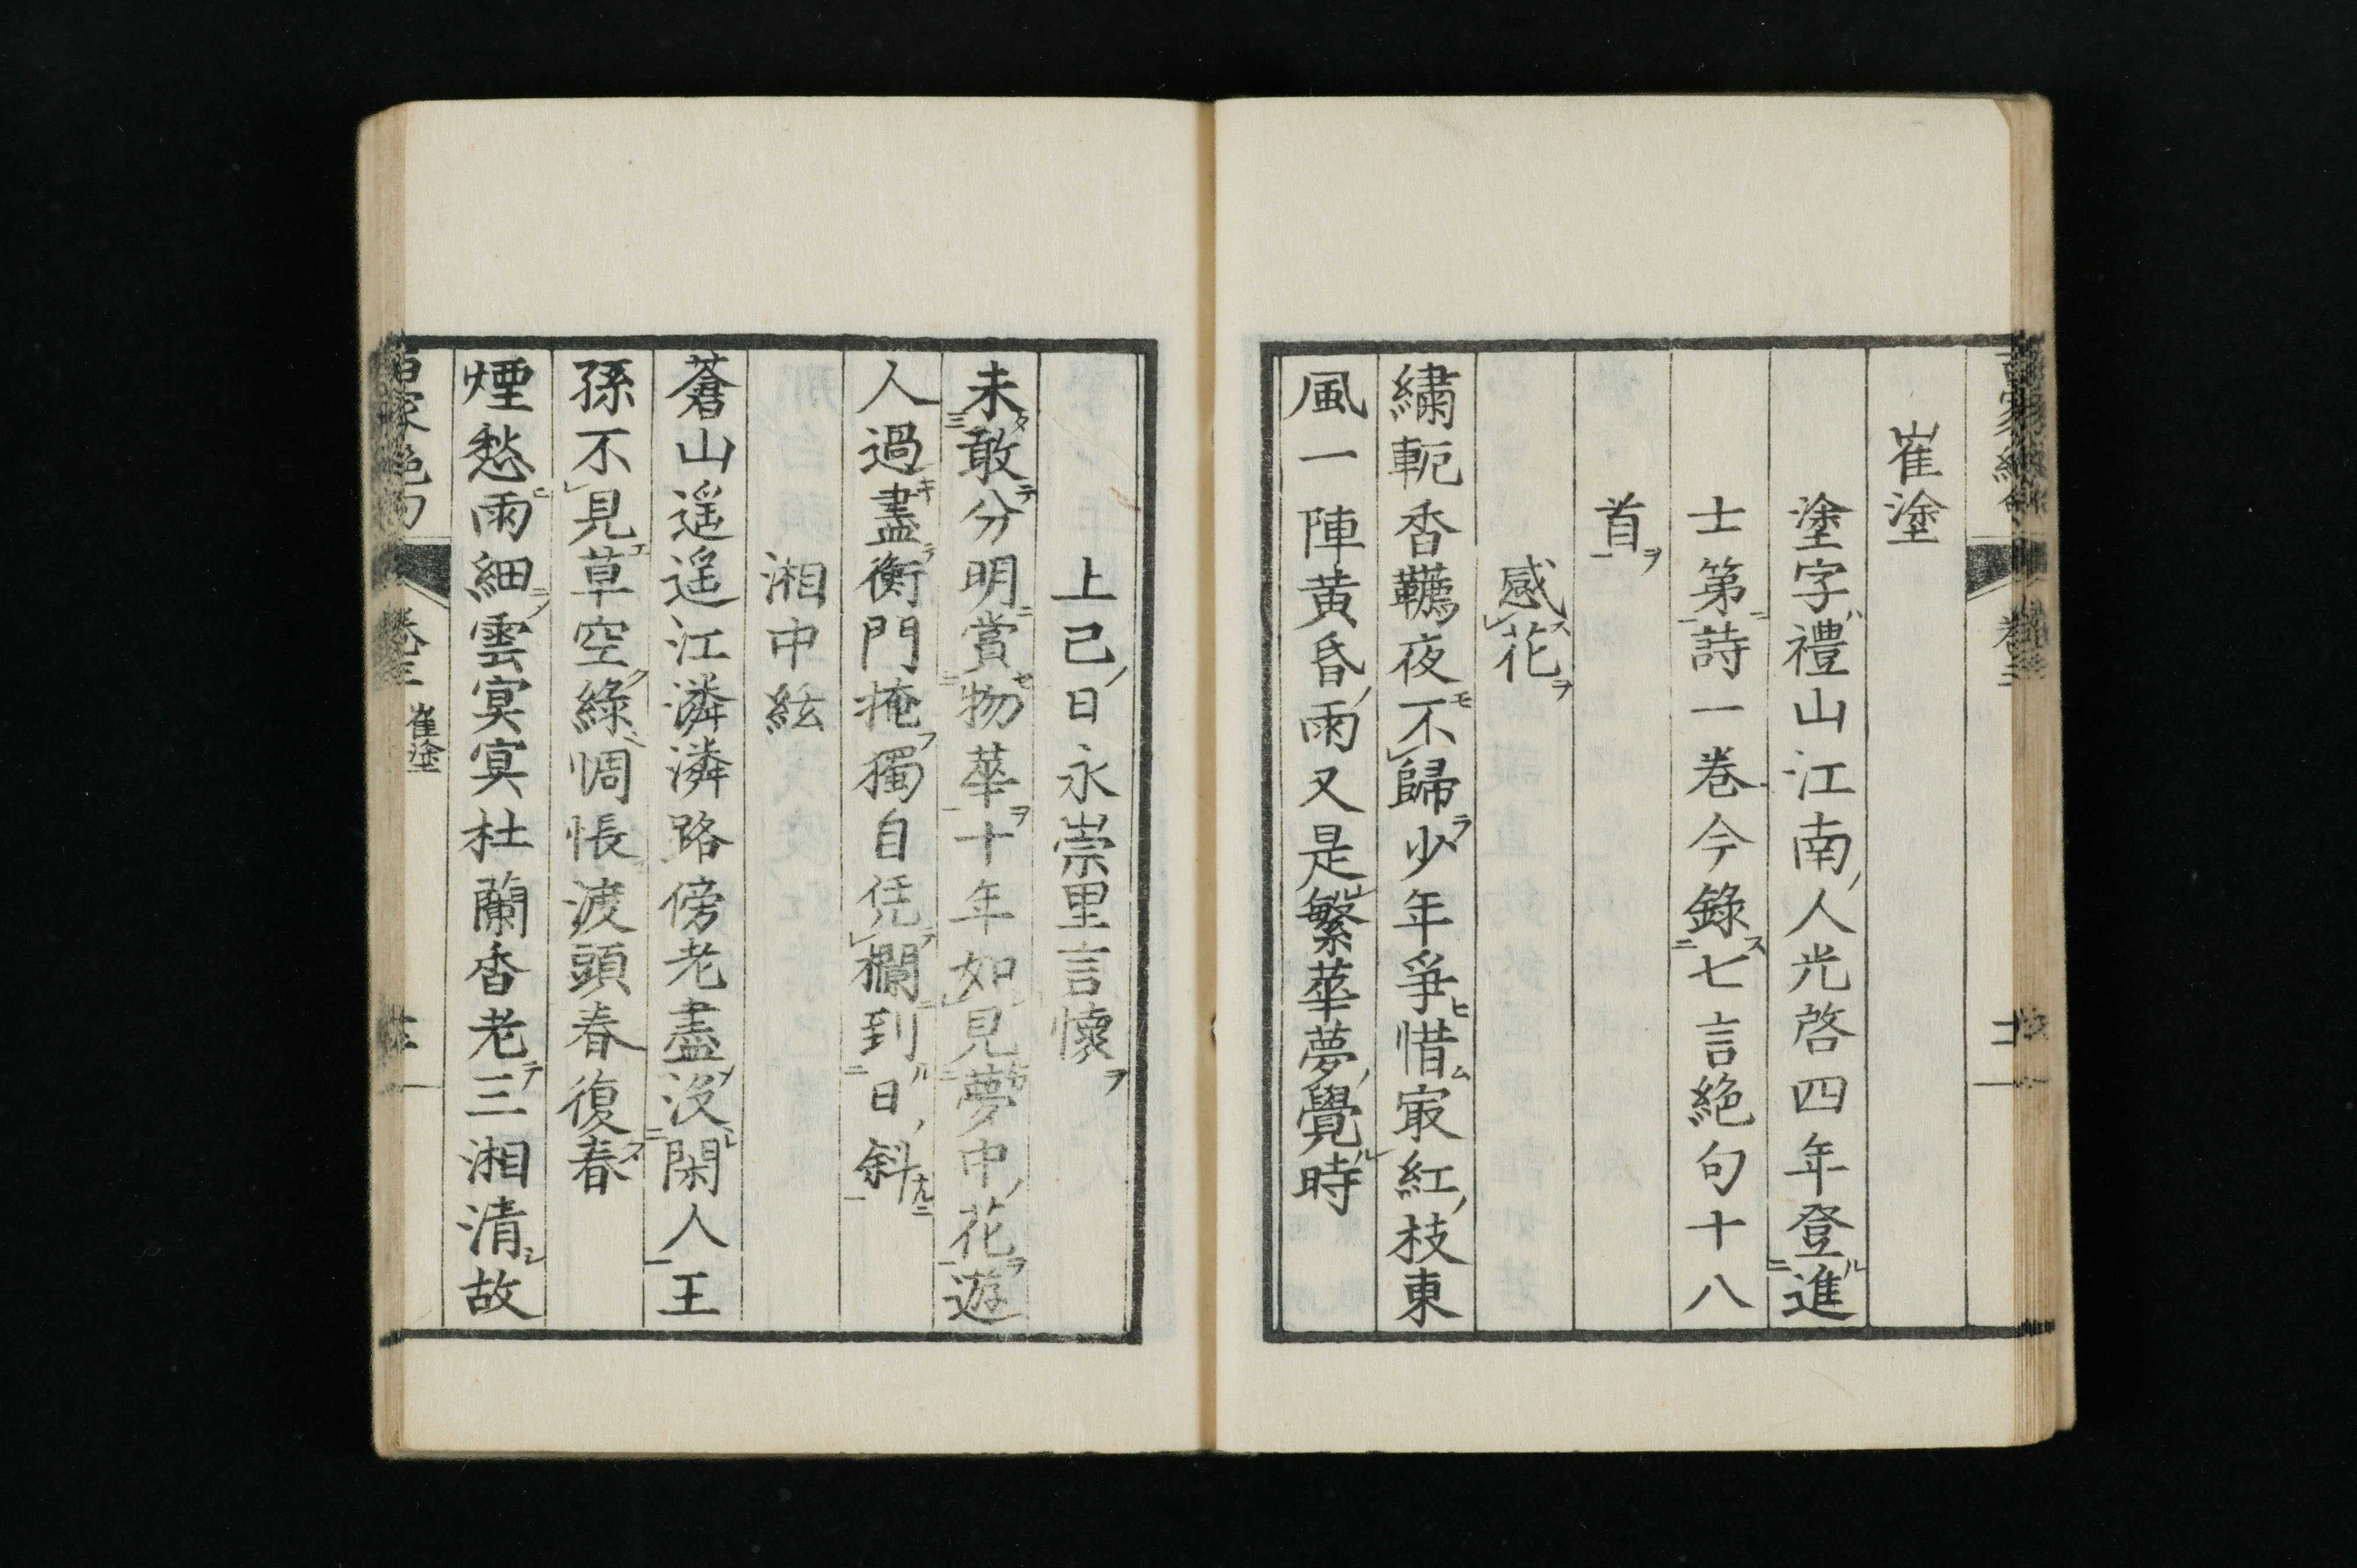 崔塗
塗字禮山江南人光啓四年登進
士第詩一卷今錄七言絶句十八
首
感花
繡軛香韉夜不歸少年爭惜㝡紅枝東
風一陣黄昏雨又是繁華夢覺時
上巳日永崇里言懷
未敢分明賞物華十年如見夢中花遊
人過盡衡門掩獨自凭欄到日斜
湘中絃
蒼山遥遥江潾潾路傍老盡沒閑人王
孫不見草空綠惆悵渡頭春復春
煙愁雨細雲冥冥杜蘭香老三湘清故
卷三 崔塗